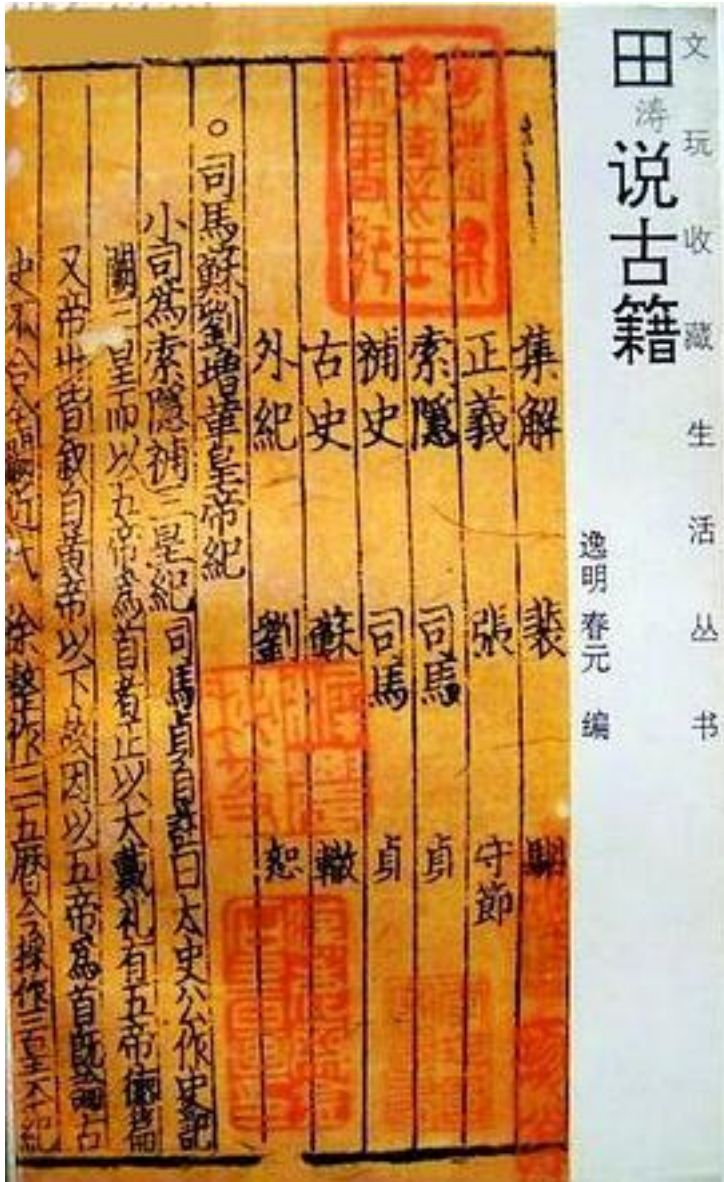 文玩收藏生活丛书
田涛说古籍
逸明 春元 编
集解 裴 駰
正義 張 守節
索隱 司馬 貞
補史 司馬 貞
古史 蘇 轍
外紀 劉 恕
○司馬蘇劉增華皇帝紀
小司馬索隱補三皇紀 司馬貞自註曰太史公作史記
闕三皇而以五帝爲首者正以大戴礼有五帝德篇
又帝出皆叙自黃帝以下故因以五帝爲首既論古
史不合
近代 徐整作三五曆今採作三皇本紀